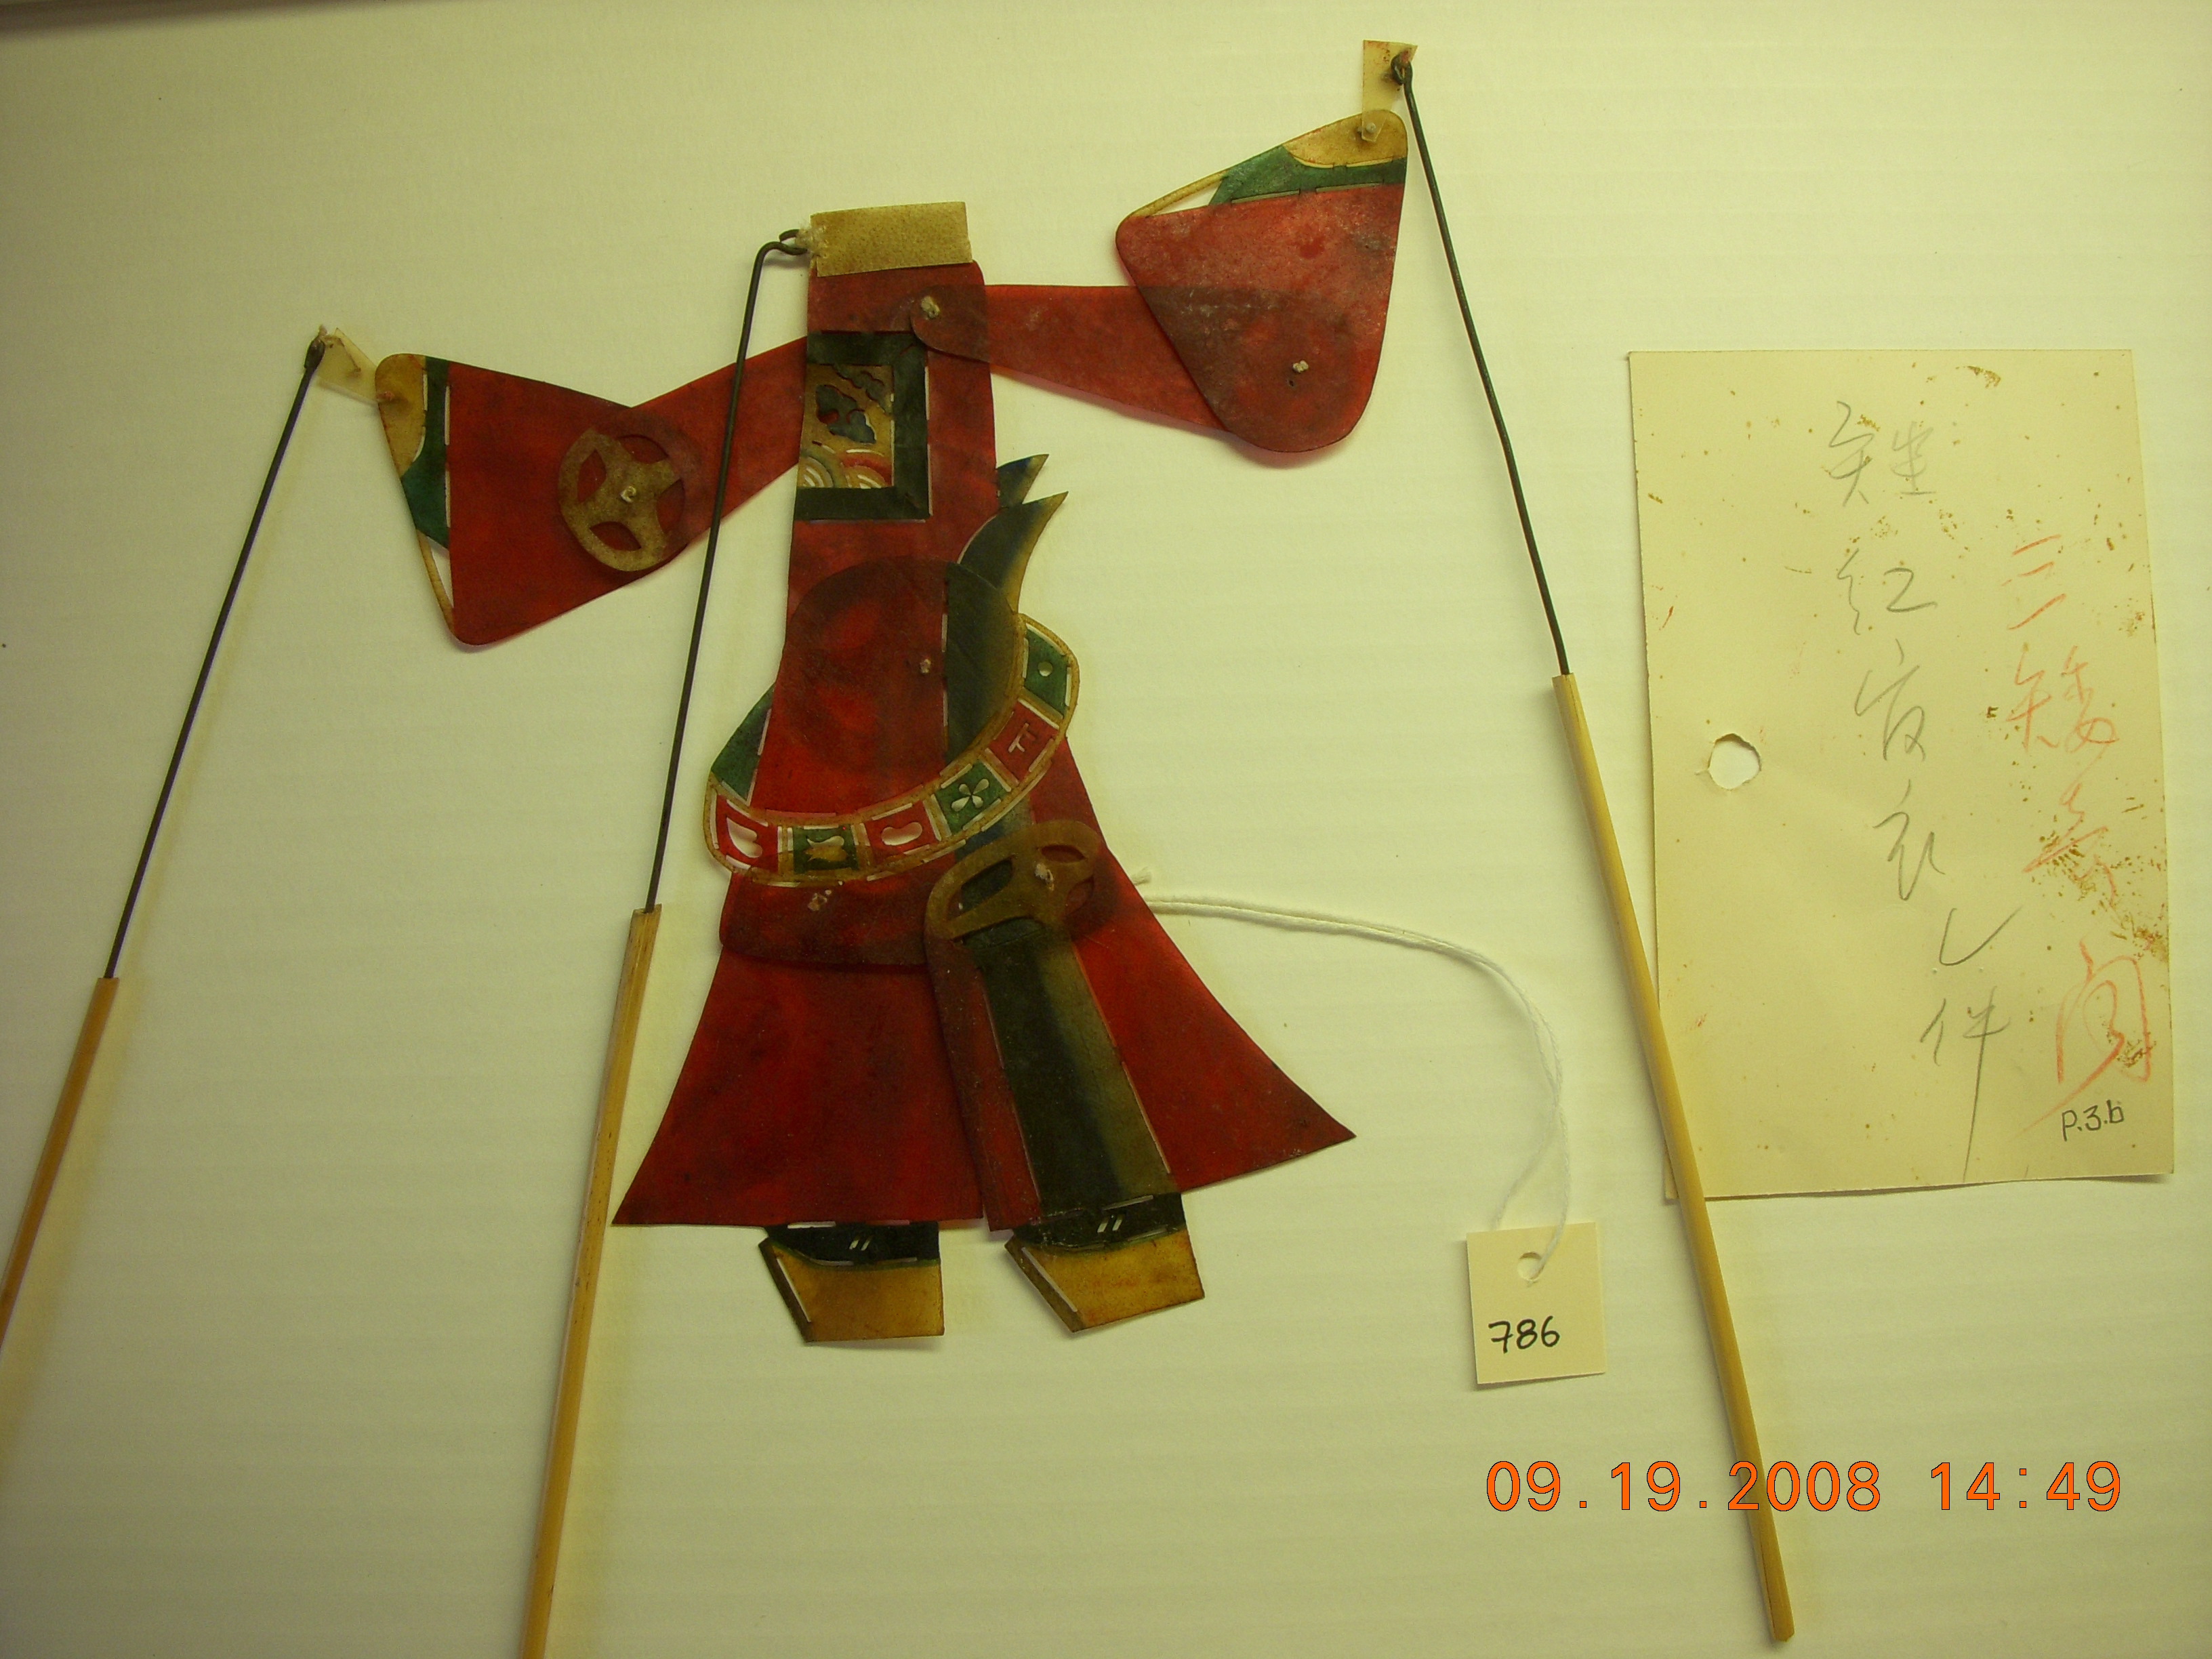 三矮奇闻
矬红官衣件
P.3.b
786
09.19.2008 14:49